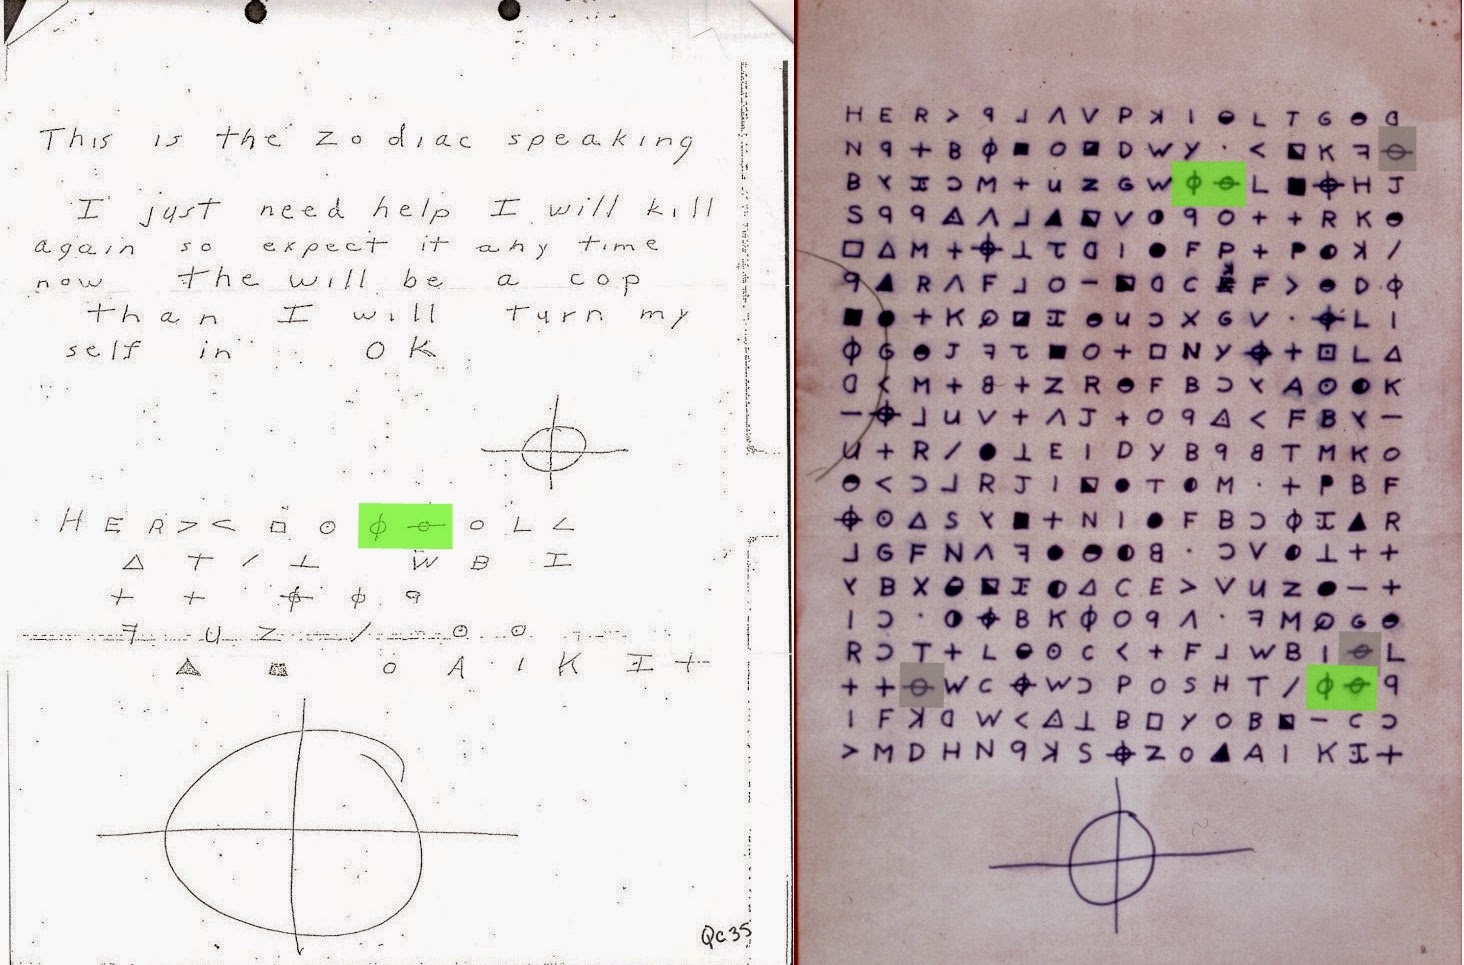 This is the zodiac speaking
I just need help I will kill
again so expect it any time
now the will be a cop
than I will turn my
self in OK
H E R > < < □ ⊙ ϕ ⊖ O L <
△ T / ⊥ W B I
+ + ⌖ ϕ 9
ꟻ U Z / ⊙ ⊙
▲ ■ O A · I K I +
Qc35
H E R > 9 ⅃ Λ V P ꓘ I ◒ L T G ◒ ᗡ
N 9 + B ϕ ■ O ◪ D W Y · < ◪ K ꟻ ⊖
B Y I Ɔ M + U Z G W ϕ ⊖ L ■ ⌖ H J
S 9 9 △ Λ ⅃ ▲ ◪ V ◑ 9 O + + R K ◒
□ △ M + ⌖ ⊥ τ ᗡ I ● F P + P ◐ ꓘ /
9 ▲ R Λ F ⅃ O − ◪ ᗡ C F > ◒ D ϕ
■ ● + K ⊘ ◪ I ◒ U Ɔ X G V · ⌖ L I
ϕ G ◒ J ꟻ τ ■ O + □ N Y ⌖ + ⊡ L △
ᗡ < M + 8 + Z R ◒ F B Ɔ Y A ⊙ ◐ K
− ⌖ ⅃ U V + Λ J + O 9 △ < F B Y −
U + R / ● ⊥ E I D Y B 9 8 T M K O
◒ < Ɔ ⅃ R J I ◪ ● T ◐ M · + P B F
⌖ ⊙ △ S Y ■ + N I ● F B Ɔ ϕ I ▲ R
⅃ G F N Λ ꟻ ● ◒ ◑ 8 · Ɔ V ◐ ⊥ + +
Y B X ◒ ◪ I ◐ △ C E > V U Z ● − +
I Ɔ · ◑ ⌖ B K ϕ O 9 Λ · ꟻ M ⊘ G ◒
R Ɔ T + L ◒ ⊙ C < + F ⅃ W B I ⊖ L
+ + ⊖ W C ⌖ W Ɔ P O S H T / ϕ ⊖ 9
I F ꓘ ᗡ W < △ ⊥ B □ Y O B ◪ − C Ɔ
> M D H N 9 ꓘ S ⌖ Z O ▲ A I K I +